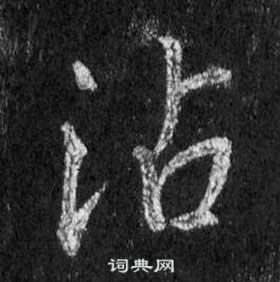 沾
词典网